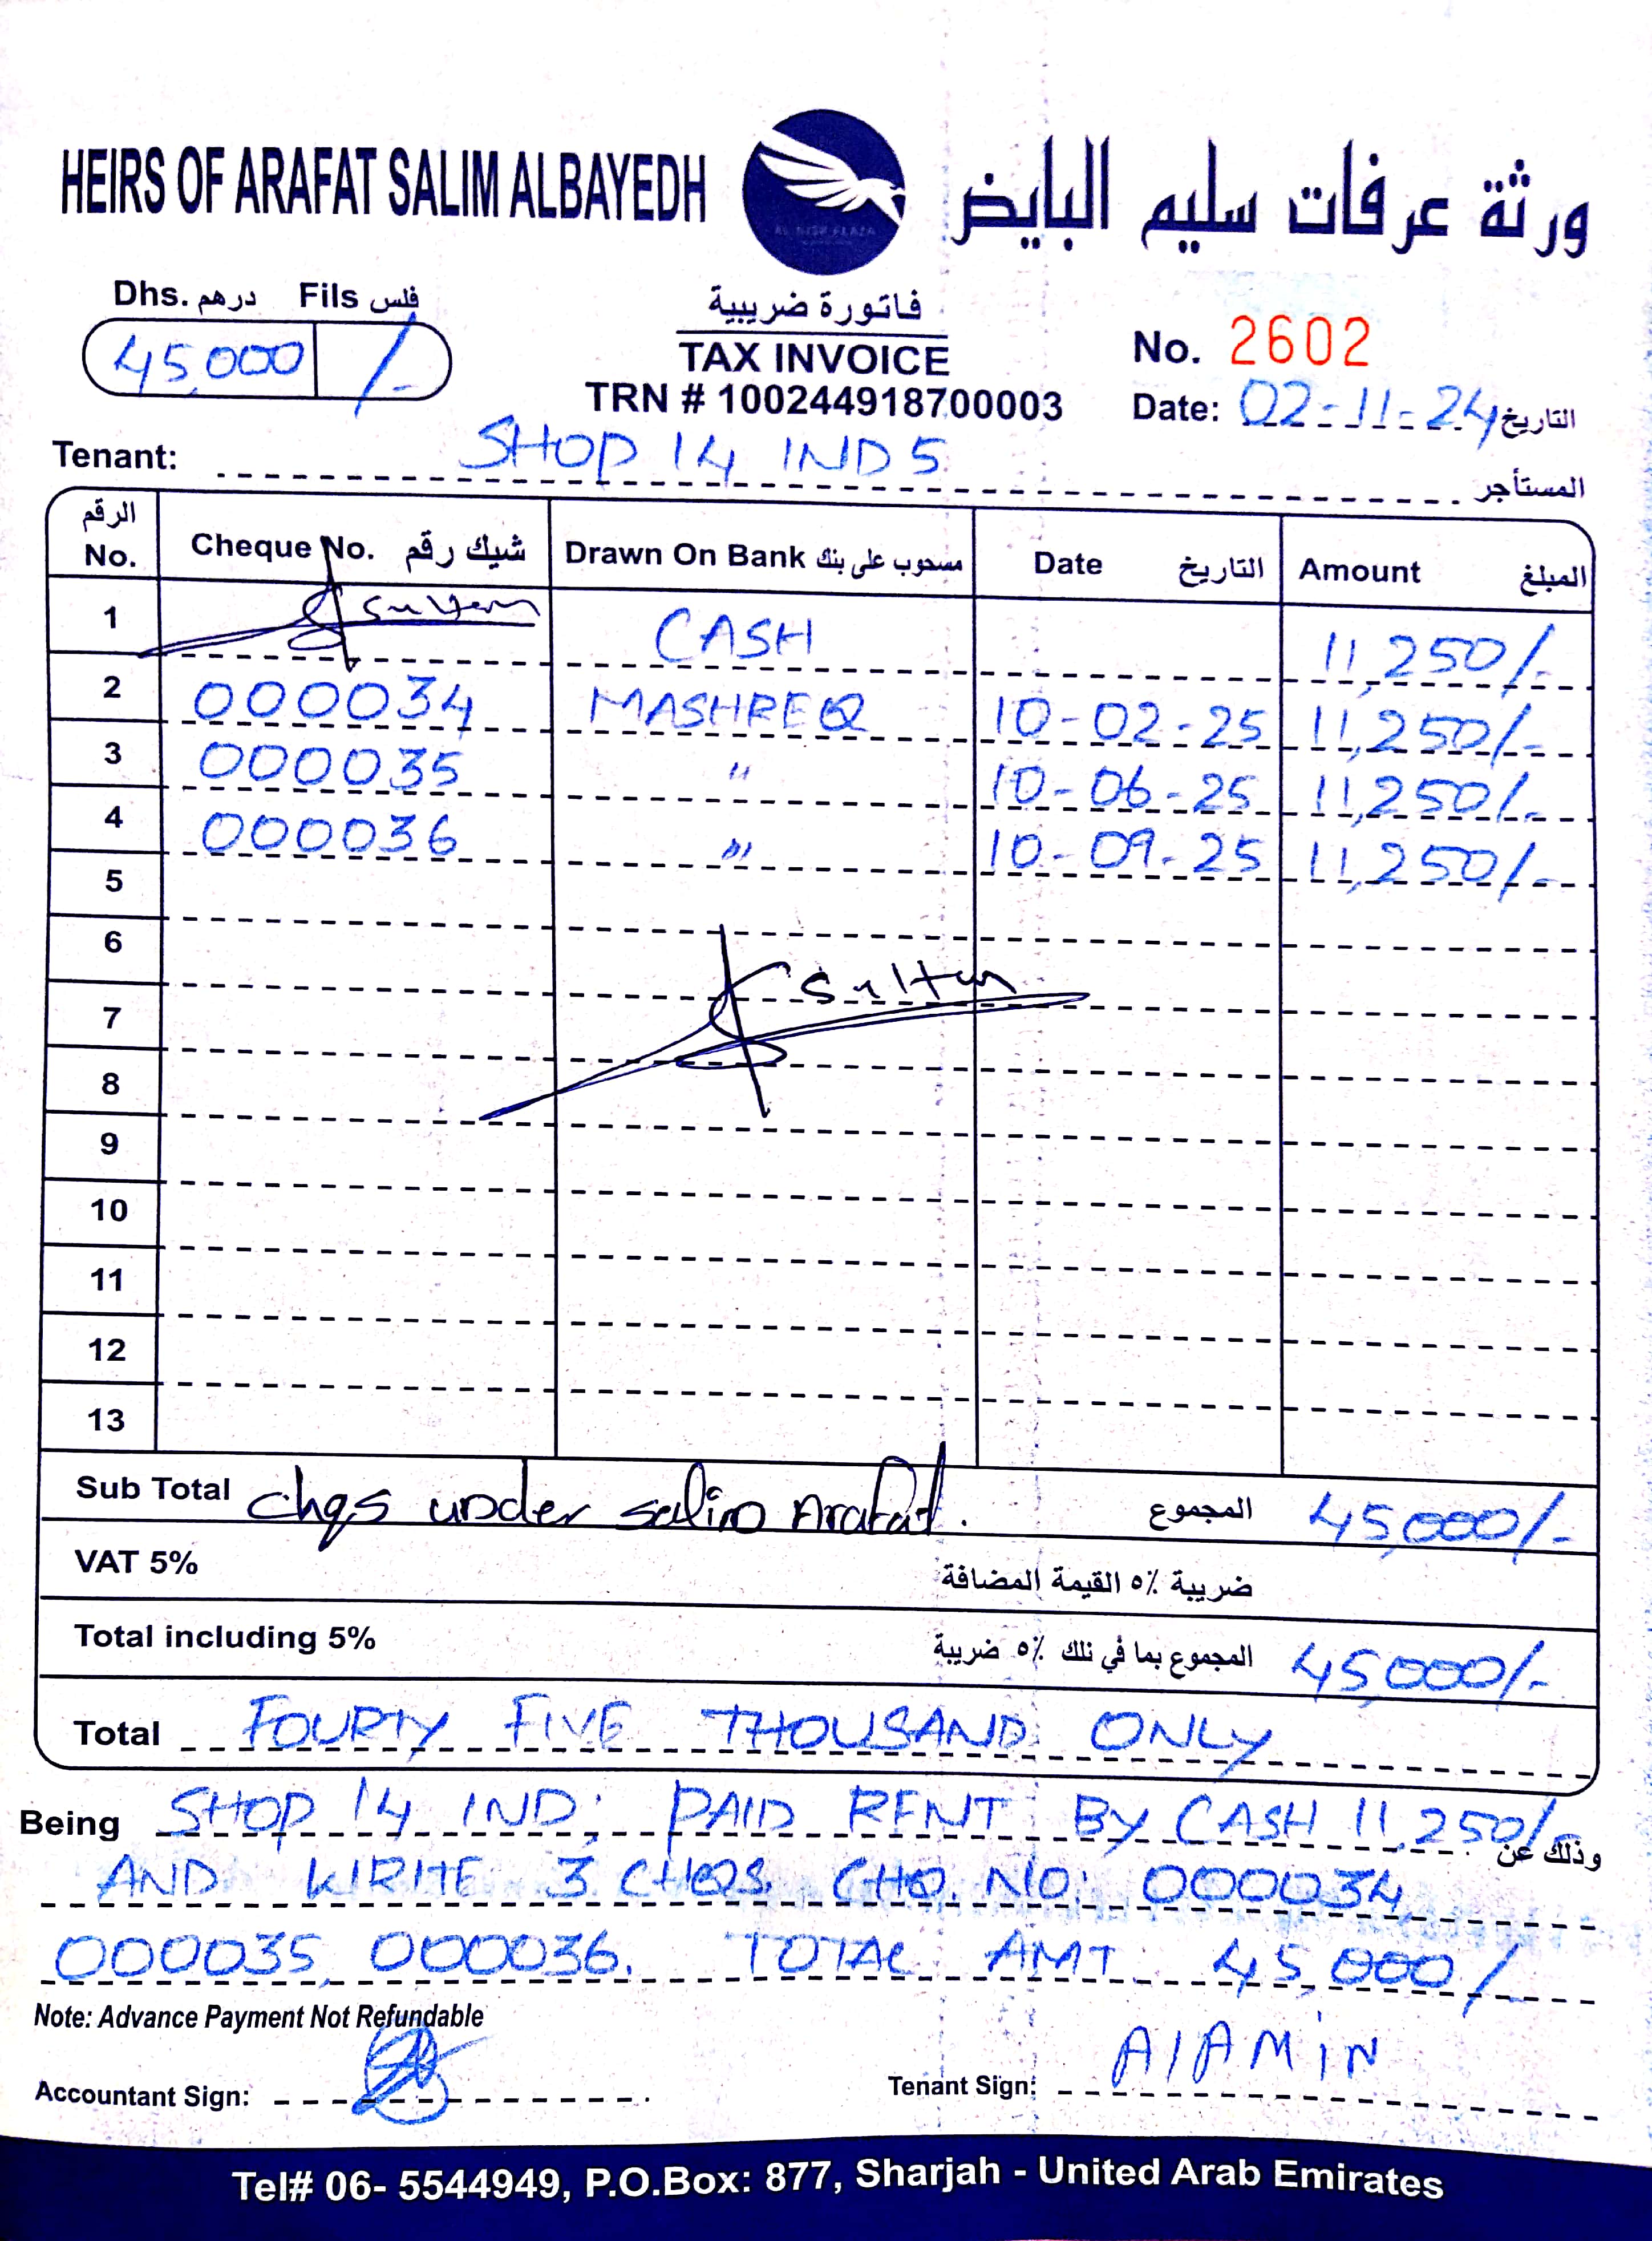 HEIRS OF ARAFAT SALIM ALBAYEDH ورثة عرفات سليم البايض
Dhs. درهم Fils فلس
45,000 /-
فاتورة ضريبية
TAX INVOICE
TRN # 100244918700003
No. 2602
Date: 02-11-24 التاريخ
Tenant: SHOP 14 IND 5 المستأجر
الرقم No. Cheque No. شيك رقم Drawn On Bank مسحوب على بنك Date التاريخ Amount المبلغ
1 Sultan CASH 11,250/-
2 000034 MASHREQ 10-02-25 11,250/-
3 000035 " 10-06-25 11,250/-
4 000036 " 10-09-25 11,250/-
5
6
Sultan
7
8
9
10
11
12
13
Sub Total chqs under salim Arafat. المجموع 45,000/-
VAT 5% ضريبة ٥٪ القيمة المضافة
Total including 5% المجموع بما في تلك ٥٪ ضريبة 45,000/-
Total FOURTY FIVE THOUSAND ONLY
Being SHOP 14 IND; PAID RENT BY CASH 11,250/- وذلك عن
AND 3 CHQS. CHQ. NO: 000034
000035, 000036. TOTAL AMT 45,000/
Note: Advance Payment Not Refundable
Accountant Sign: Tenant Sign: AlAMiN
Tel# 06- 5544949, P.O.Box: 877, Sharjah - United Arab Emirates